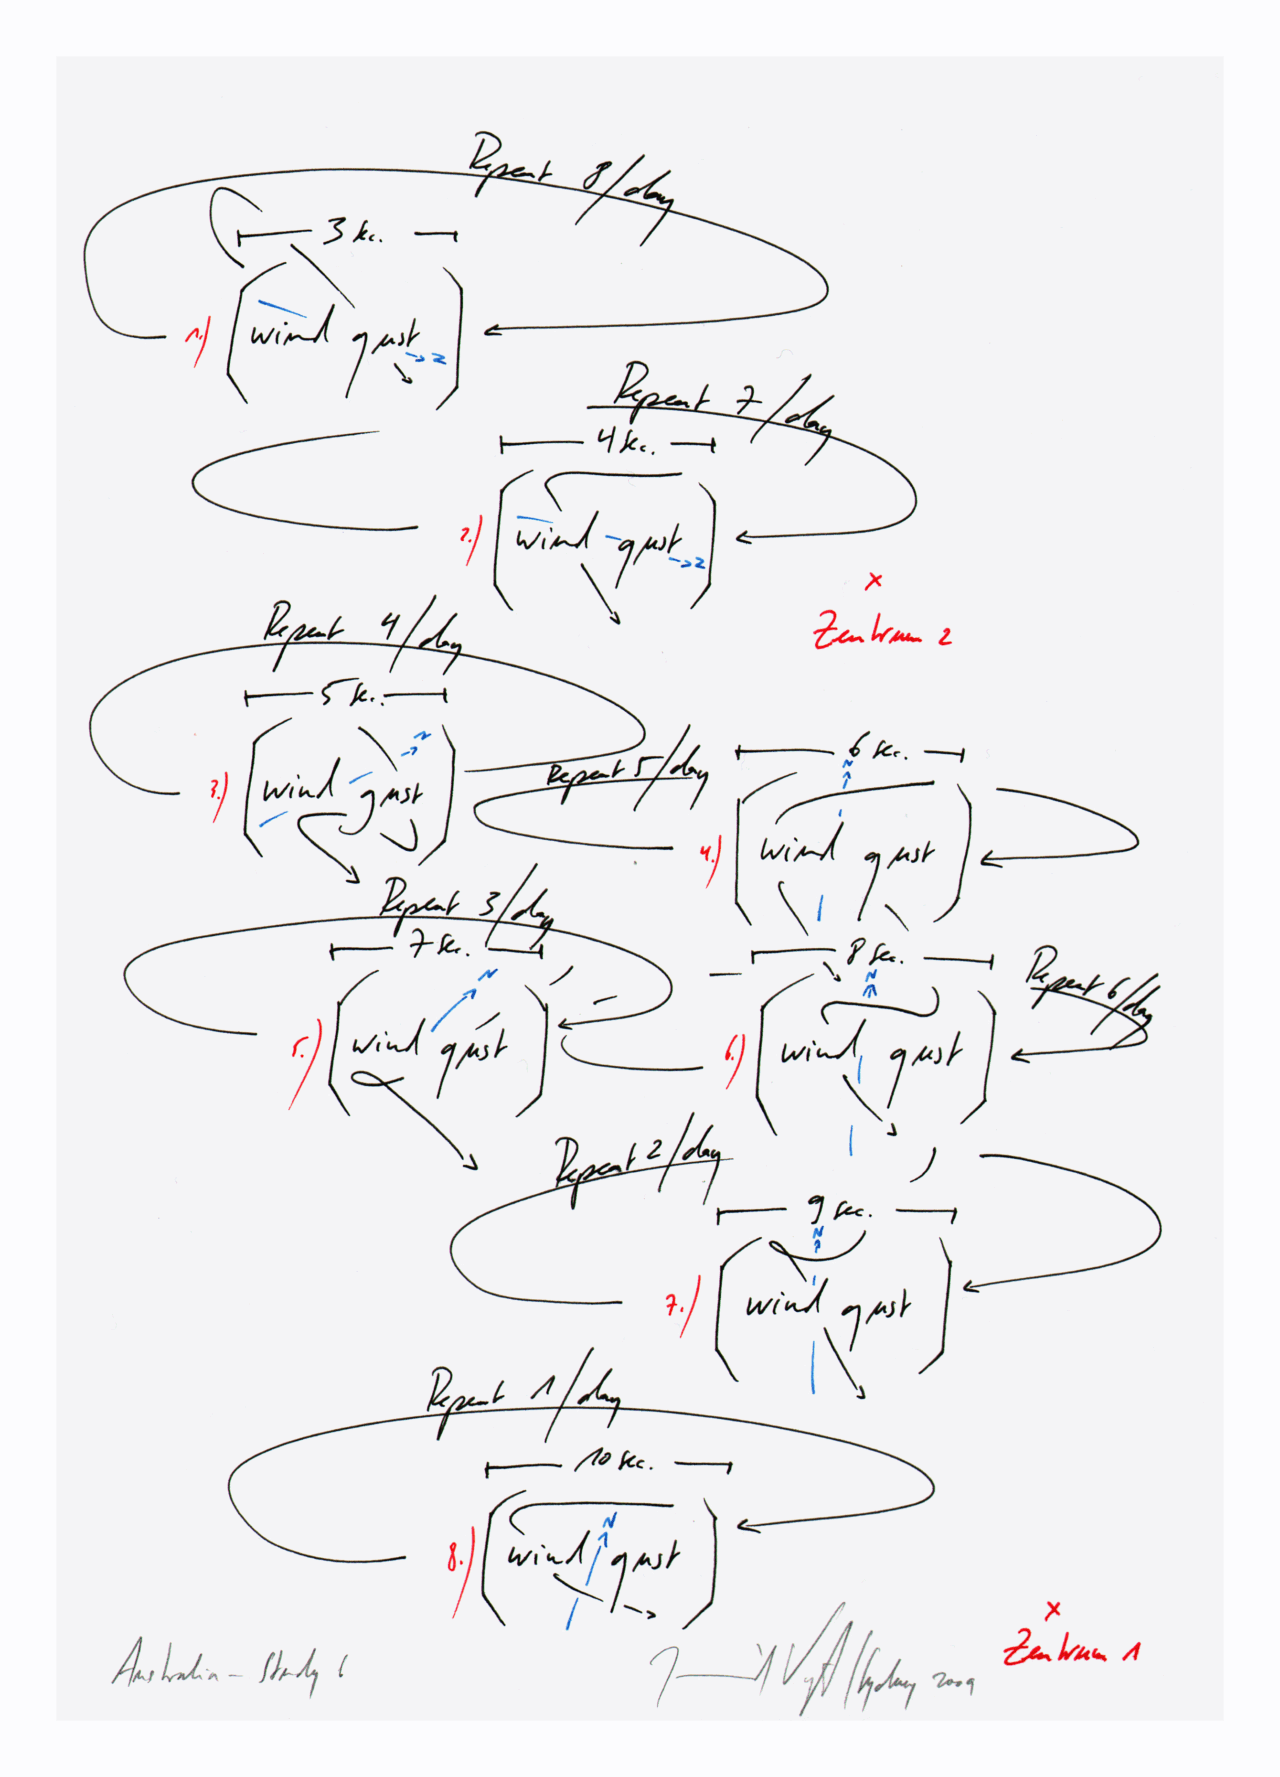 Repeat 8/day
3 sec.
1.) wind gust
→ N
Repeat 7/day
4 sec.
2.) wind gust
→ N
x
Zentrum 2
Repeat 4/day
5 sec.
N
3.) wind gust
Repeat 5/day
6 sec.
N
4.) wind gust
Repeat 3/day
7 sec.
N
5.) wind gust
8 sec.
N
Repeat 6/day
6.) wind gust
Repeat 2/day
9 sec.
N
7.) wind gust
Repeat 1/day
10 sec.
N
8.) wind gust
x
Zentrum 1
Australia - Study 6
/Sydney 2009